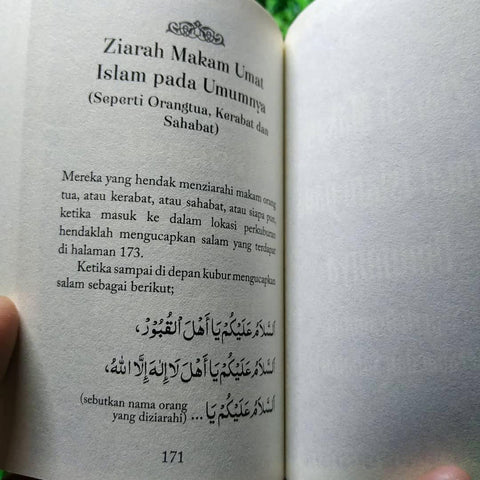 Ziarah Makam Umat
Islam pada Umumnya
(Seperti Orangtua, Kerabat dan
Sahabat)
Mereka yang hendak menziarahi makam orang
tua, atau kerabat, atau sahabat, atau siapa pun,
ketika masuk ke dalam lokasi perkuburan
hendaklah mengucapkan salam yang terdapat
di halaman 173.
Ketika sampai di depan kubur mengucapkan
salam sebagai berikut;
اَلسَّلَامُ عَلَيْكُمْ يَا أَهْلَ الْقُبُوْرِ،
اَلسَّلَامُ عَلَيْكُمْ يَا أَهْلَ لَا إِلٰهَ إِلَّا اللهُ،
اَلسَّلَامُ عَلَيْكُمْ يَا ... (sebutkan nama orang
yang diziarahi)
171